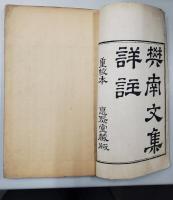 樊南文集
詳註
重校本
惠聚堂藏版